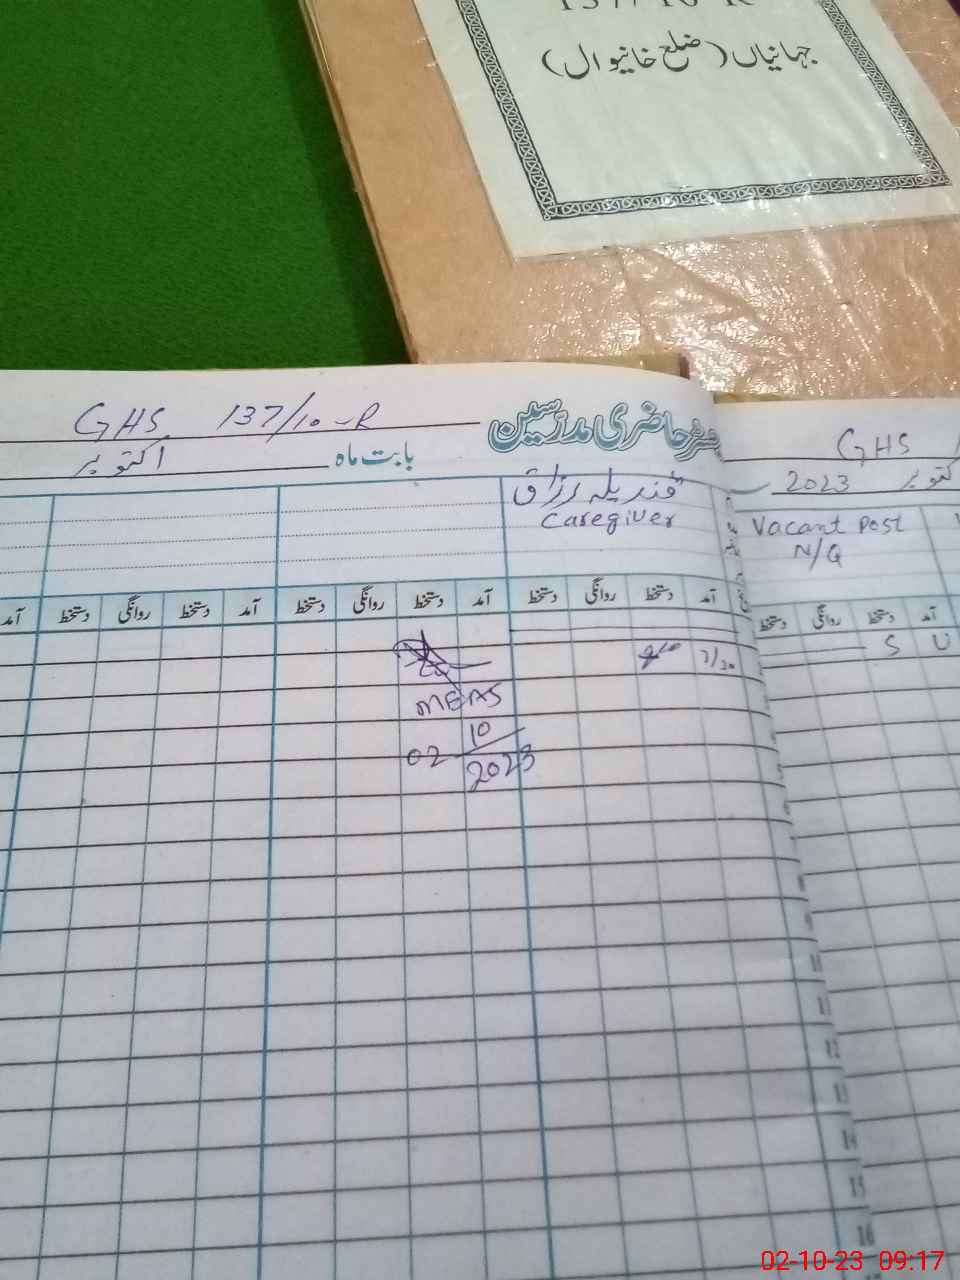 137/10-R
جہانیاں (ضلع خانیوال)
GHS 137/10-R
رجسٹر حاضری مدرسین
بابت ماہ اکتوبر
قندیلہ رزاق
Caregiver
آمد دستخط روانگی دستخط آمد دستخط روانگی دستخط آمد دستخط روانگی دستخط آمد
7/20
MEAS
02/10/2023
GHS
اکتوبر 2023
Vacant Post
N/Q
آمد دستخط روانگی دستخط
U S
10
11
12
13
14
15
16
02-10-23 09:17